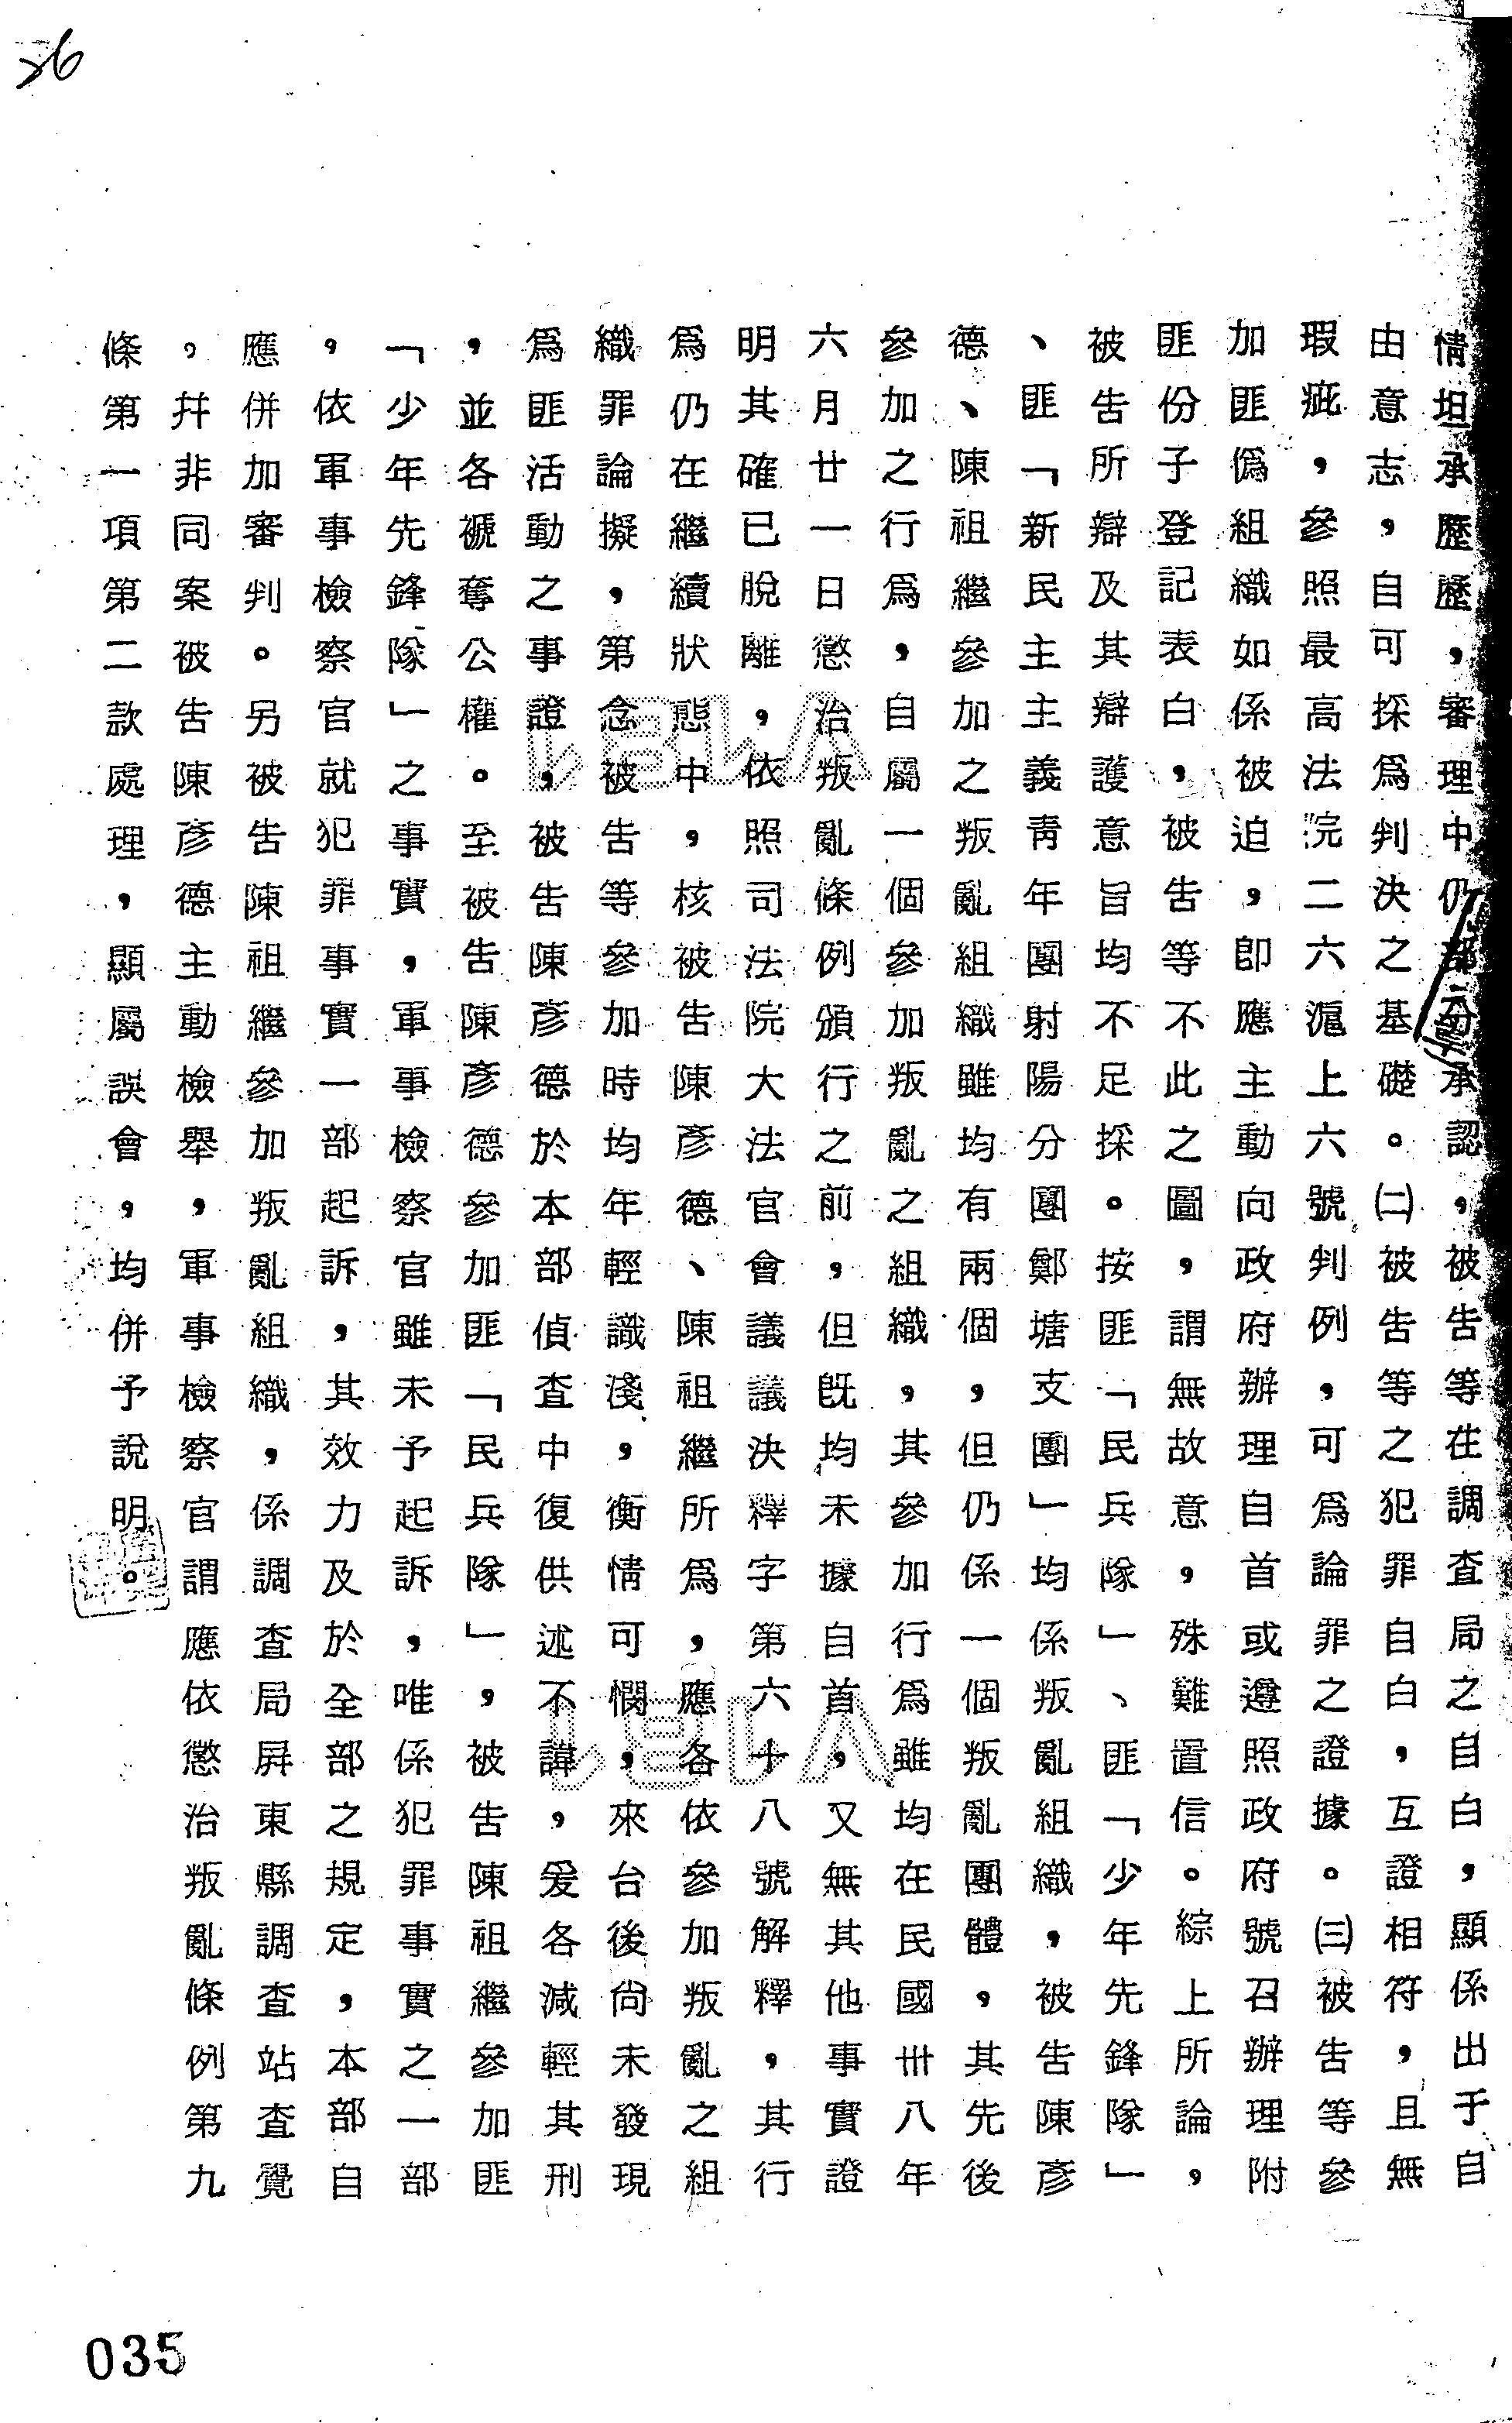 36
情坦承歷歷，審理中仍部分承認，被告等在調查局之自白，顯係出于自
由意志，自可採為判決之基礎。㈡被告等之犯罪自白，互證相符，且無
瑕疵，參照最高法院二六滬上六號判例，可為論罪之證據。㈢被告等參
加匪偽組織如係被迫，卽應主動向政府辦理自首或遵照政府號召辦理附
匪份子登記表白，被告等不此之圖，謂無故意，殊難置信。綜上所論，
被告所辯及其辯護意旨均不足採。按匪「民兵隊」、匪「少年先鋒隊」
、匪「新民主主義靑年團射陽分團鄭塘支團」均係叛亂組織，被告陳彥
德、陳祖繼參加之叛亂組織雖均有兩個，但仍係一個叛亂團體，其先後
參加之行為，自屬一個參加叛亂之組織，其參加行為雖均在民國卅八年
六月廿一日懲治叛亂條例頒行之前，但旣均未據自首，又無其他事實證
明其確已脫離，依照司法院大法官會議議決釋字第六十八號解釋，其行
為仍在繼續狀態中，核被告陳彥德、陳祖繼所為，應各依參加叛亂之組
織罪論擬，第念被告等參加時均年輕識淺，衡情可憫，來台後尚未發現
為匪活動之事證，被告陳彥德於本部偵查中復供述不諱，爰各減輕其刑
，並各褫奪公權。至被告陳彥德參加匪「民兵隊」，被告陳祖繼參加匪
「少年先鋒隊」之事實，軍事檢察官雖未予起訴，唯係犯罪事實之一部
，依軍事檢察官就犯罪事實一部起訴，其效力及於全部之規定，本部自
應併加審判。另被告陳祖繼參加叛亂組織，係調查局屏東縣調查站查覺
，幷非同案被告陳彥德主動檢舉，軍事檢察官謂應依懲治叛亂條例第九
條第一項第二款處理，顯屬誤會，均併予說明。
035